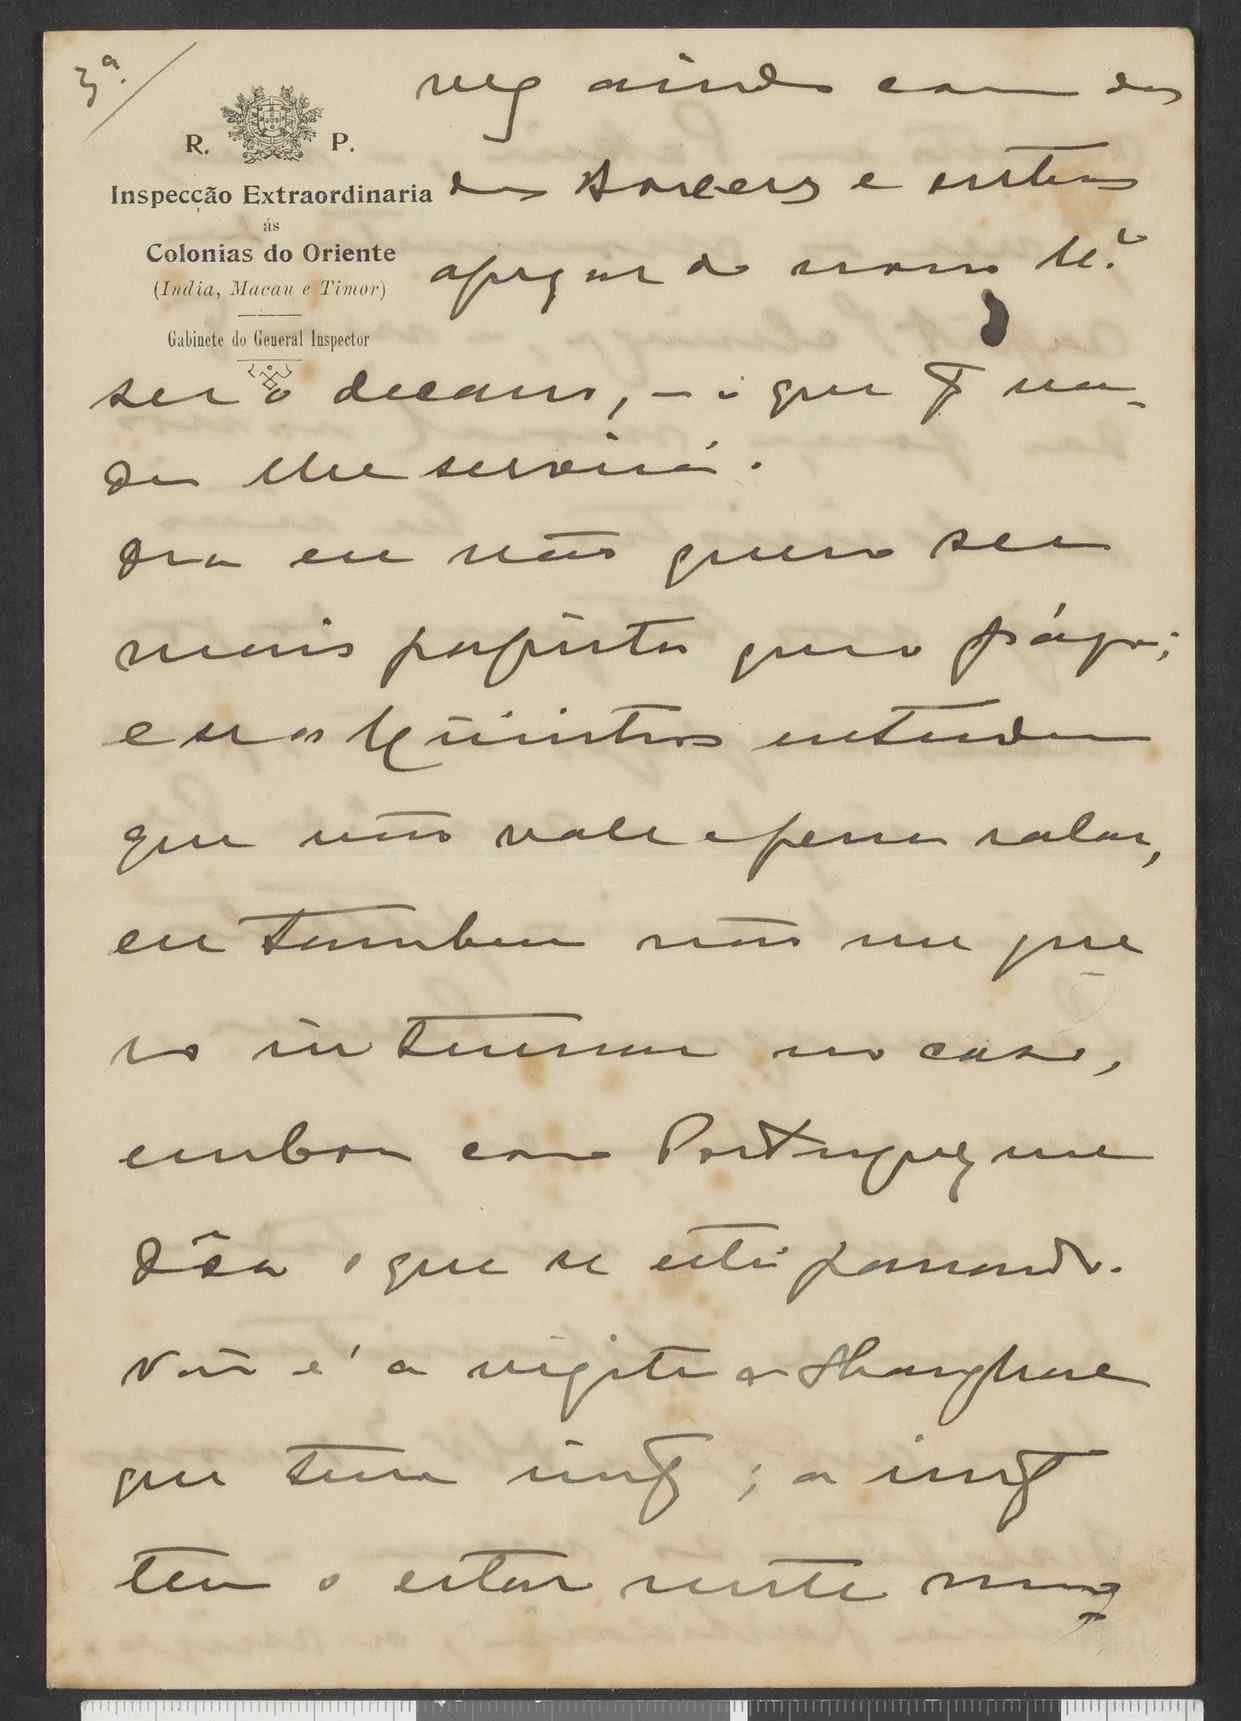 3ª
R. P.
Inspecção Extraordinaria
ás
Colonias do Oriente
(India, Macau e Timor)
Gabinete do General Inspector
vez ainda com
e outros
apezar do nosso
ser o decano, - o que na-
da lhe servirá.
Ora eu não quero ser
mais papista que o pápa;
e se os Ministros entendem
que não vale a pena ralar,
eu tambem não me que
ro internar no caso,
embora como Portuguez me
dôa o que se está passando.
Não é a vizita a Shanghae
que tem ; a
tem o estar neste